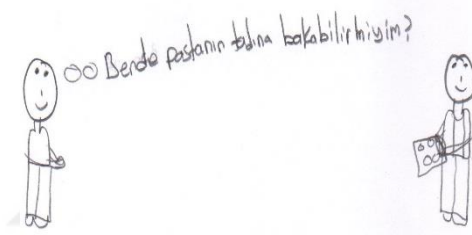 Bende pastanın tadına bakabilirmiyim?